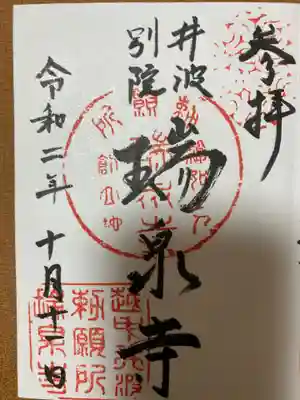 参拝
井波
別院
瑞泉寺
令和二年 十月十一日
越中井波
勅願所
瑞泉寺